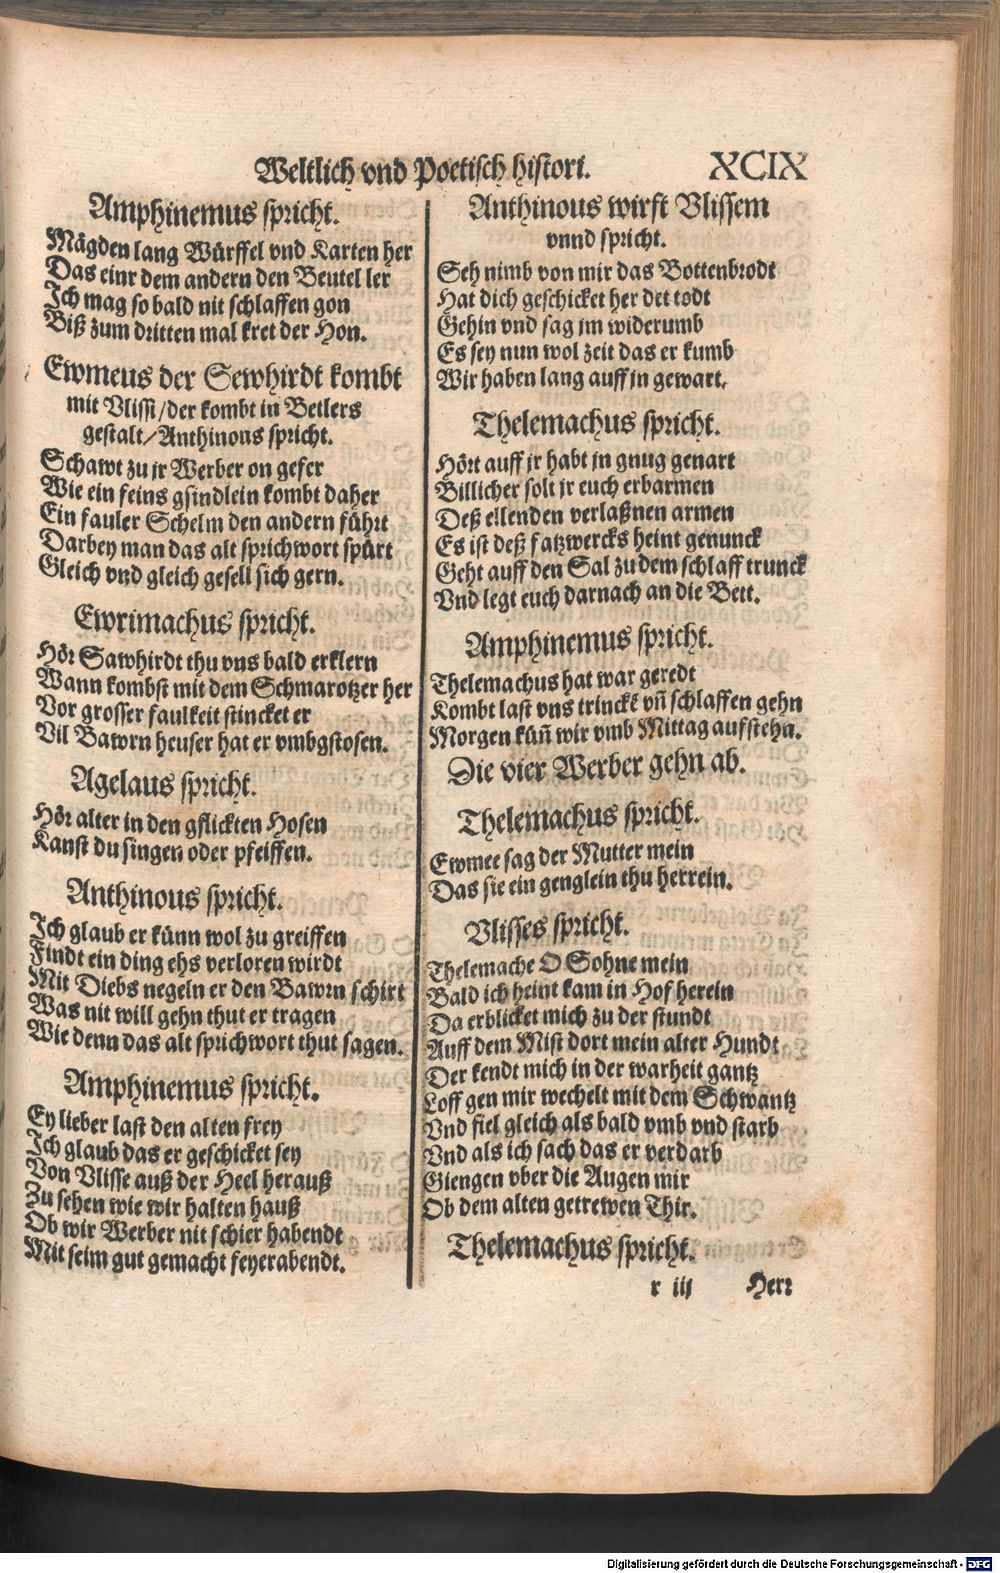 Weltlich vnd Poetisch histori. XCIX
Amphinemus spricht.
Mägden lang Würffel vnd Karten her
Das einr dem andern den Beutel ler
Ich mag so bald nit schlaffen gon
Biß zum dritten mal kret der Hon.
Ewmeus der Sewhirdt kombt
mit Vlissi/der kombt in Betlers
gestalt/Anthinous spricht.
Schawt zu jr Werber on gefer
Wie ein feins gsindlein kombt daher
Ein fauler Schelm den andern führt
Darbey man das alt sprichwort spürt
Gleich vnd gleich gesell sich gern.
Ewrimachus spricht.
Hör Sawhirdt thu vns bald erklern
Wann kombst mit dem Schmarotzer her
Vor grosser faulkeit stincket er
Vil Bawrn heuser hat er vmbgstosen.
Agelaus spricht.
Hör alter in den gflickten Hosen
Kanst du singen oder pfeiffen.
Anthinous spricht.
Ich glaub er künn wol zu greiffen
Findt ein ding ehs verloren wirdt
Mit Diebs negeln er den Bawrn schirt
Was nit will gehn thut er tragen
Wie denn das alt sprichwort thut sagen.
Amphinemus spricht.
Ey lieber last den alten frey
Ich glaub das er geschicket sey
Von Vlisse auß der Heel herauß
Zu sehen wie wir halten hauß
Ob wir Werber nit schier habendt
Mit seim gut gemacht feyerabendt.
Anthinous wirft Vlissem
vnnd spricht.
Seh nimb von mir das Bottenbrodt
Hat dich geschicket her det todt
Gehin vnd sag jm widerumb
Es sey nun wol zeit das er kumb
Wir haben lang auff jn gewart.
Thelemachus spricht.
Hört auff jr habt jn gnug genart
Billicher solt jr euch erbarmen
Deß ellenden verlaßnen armen
Es ist deß fatzwercks heint genunck
Geht auff den Sal zu dem schlaff trunck
Vnd legt euch darnach an die Bett.
Amphinemus spricht.
Thelemachus hat war geredt
Kombt last vns trinckē vñ schlaffen gehn
Morgen küñ wir vmb Mittag aufstehn.
Die vier Werber gehn ab.
Thelemachus spricht.
Ewmee sag der Mutter mein
Das sie ein genglein thu herrein.
Vlisses spricht.
Thelemache O Sohne mein
Bald ich heint kam in Hof herein
Da erblicket mich zu der stundt
Auff dem Mist dort mein alter Hundt
Der kendt mich in der warheit gantz
Loff gen mir wechelt mit dem Schwantz
Vnd fiel gleich als bald vmb vnd starb
Vnd als ich sach das er verdarb
Giengen vber die Augen mir
Ob dem alten getrewen Thir.
Thelemachus spricht.
r iij Herr
Digitalisierung gefördert durch die Deutsche Forschungsgemeinschaft - DFG